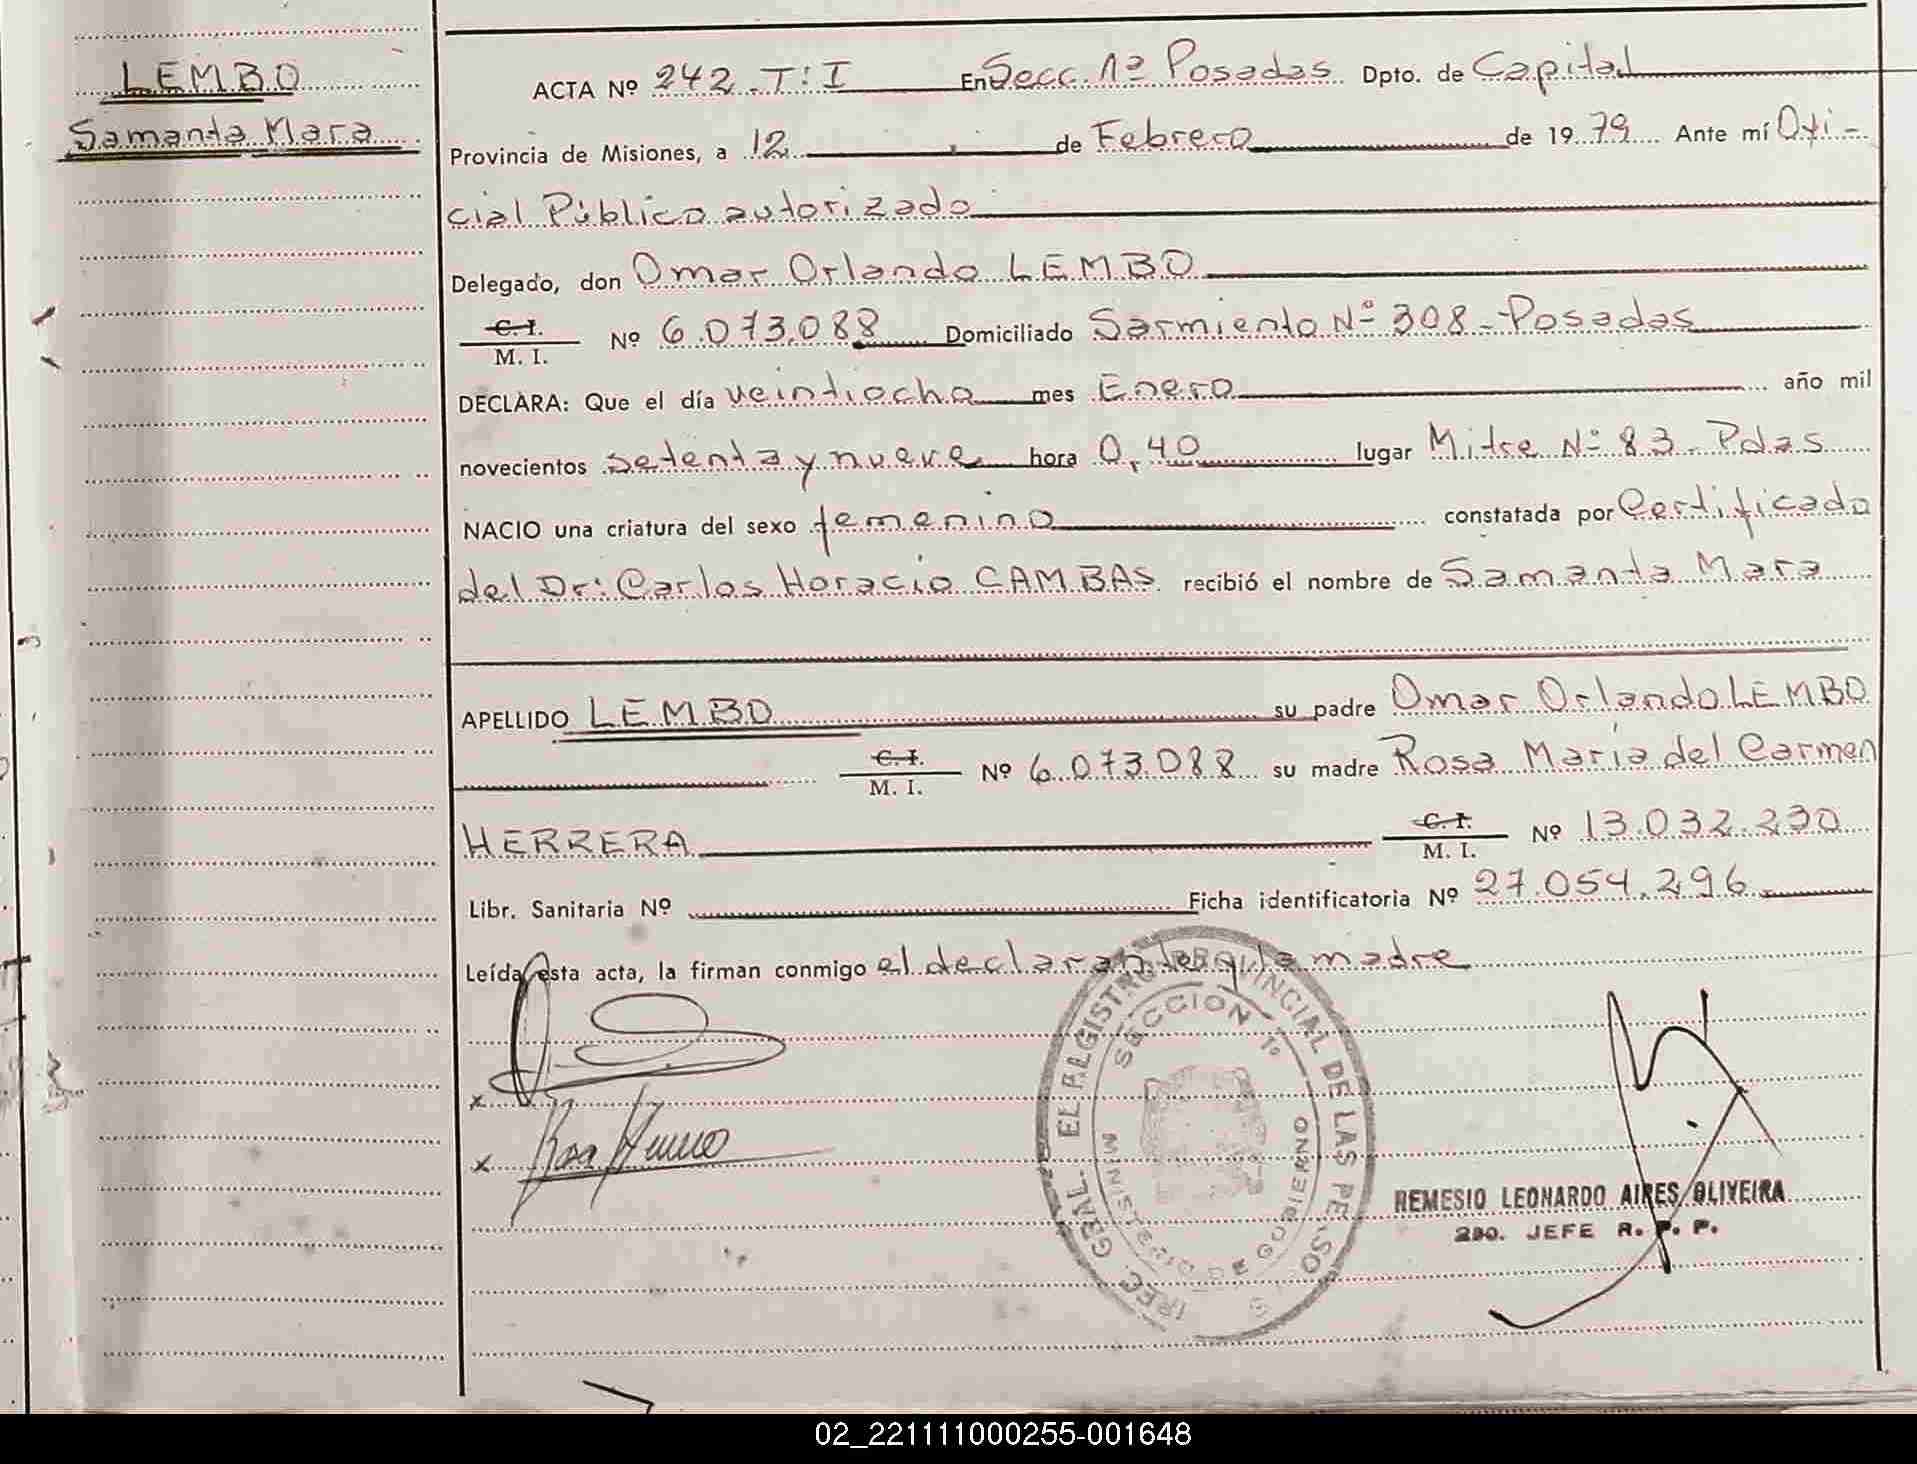 LEMBO
Samanta Mara
ACTA Nº 242 T: I En Secc. 1ª Posadas Dpto. de Capital
Provincia de Misiones, a 12 de Febrero de 1979 Ante mí Ofi-
cial Público autorizado
Delegado, don Omar Orlando LEMBO
C. I. / M. I. Nº 6.073.088 Domiciliado Sarmiento Nº 308 - Posadas
DECLARA: Que el día veintiocho mes Enero año mil
novecientos setenta y nueve hora 0,40 lugar Mitre Nº 83 - Pdas
NACIO una criatura del sexo femenino constatada por Certificado
del Dr: Carlos Horacio CAMBAS recibió el nombre de Samanta Mara
APELLIDO LEMBO su padre Omar Orlando LEMBO
C. I. / M. I. Nº 6.073.088 su madre Rosa María del Carmen
HERRERA C. I. / M. I. Nº 13.032.230
Libr. Sanitaria Nº Ficha identificatoria Nº 27.054.296
Leída esta acta, la firman conmigo el declarante y la madre
SECCION 1º
MINISTERIO DE GOBIERNO
x
x Rosa Herrera
REMESIO LEONARDO AIRES OLIVEIRA
2DO. JEFE R. P. P.
02_221111000255-001648